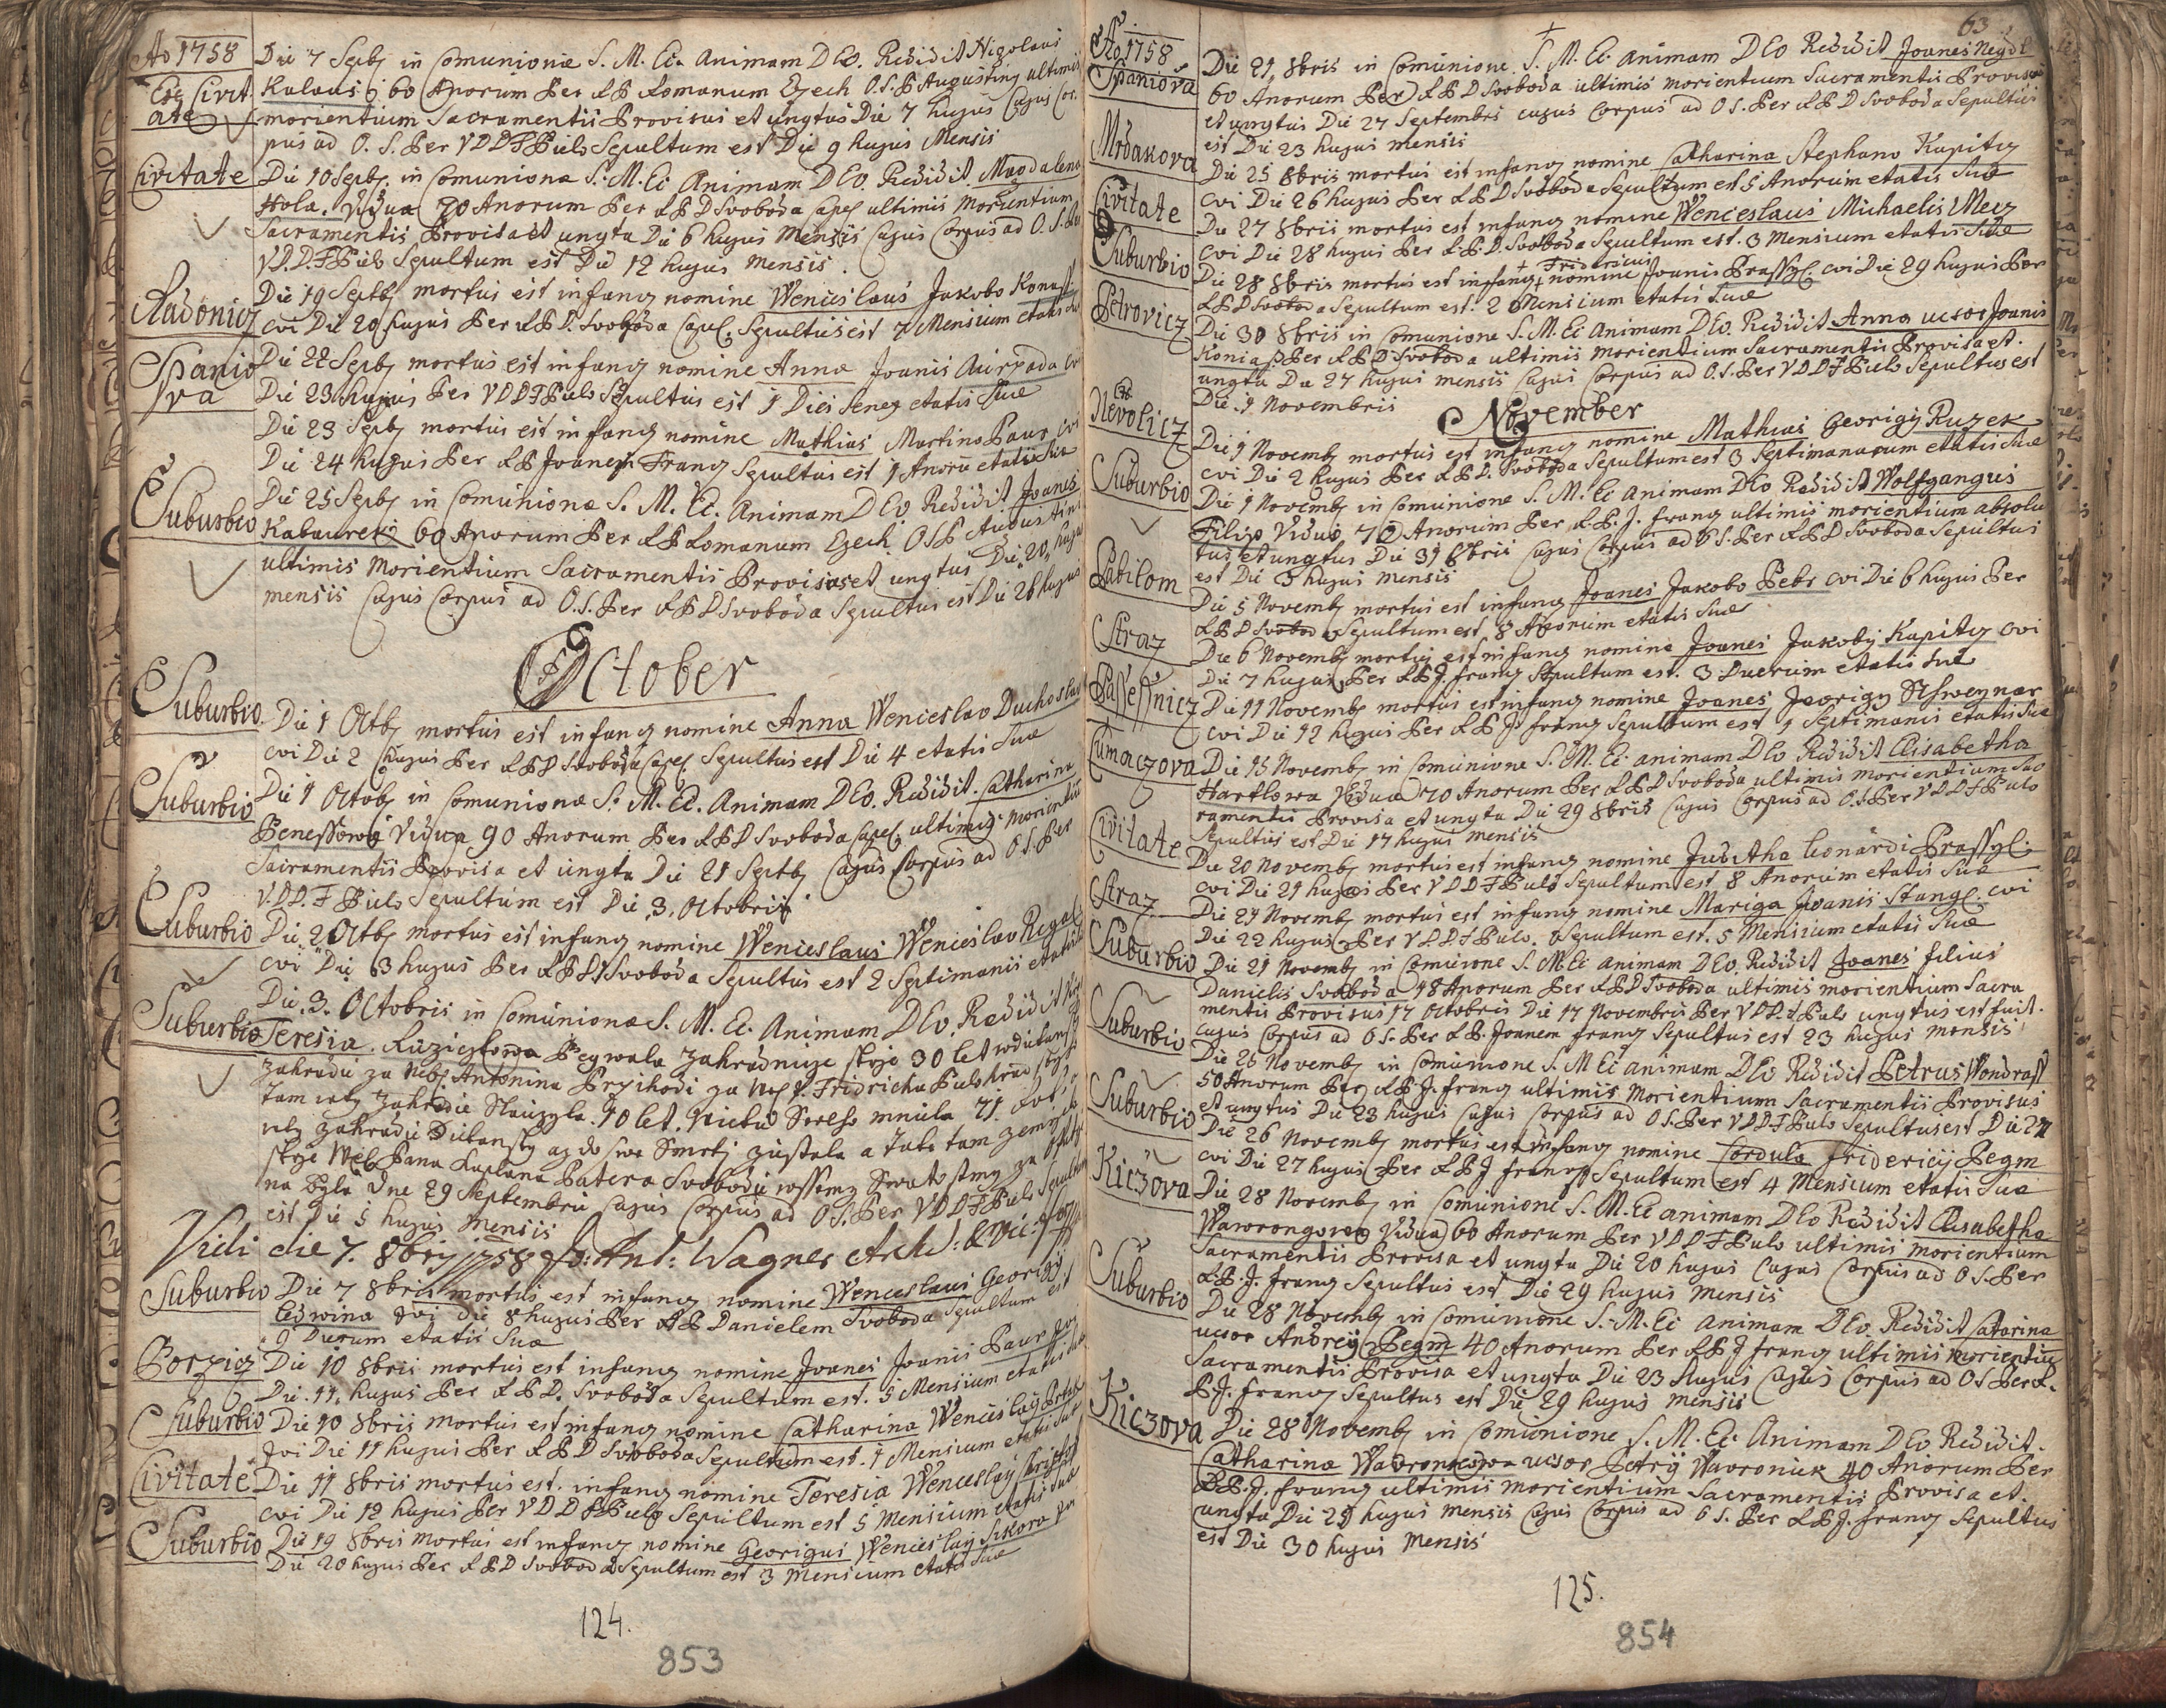 Ao 1758
Ex Civit
ate
Die 7 Septb in Comunione S. M. Ec. Animam DEo. Redidit Nigolaus
Kulaus 60 Anorum Per RP Romanum Czech O.S.P Augustiny ultimis
morientium Sacramentis Provisus et ungtus Die 7 hujus Cujus Cor-
pus ad O. S. Per VDDFPuls Sepultum est Die 9 hujus Mensis
Civitate
Die 10 Septb. in Comunione S. M. Ec Animam DEo. Redidit Magdalena
Hola. Vidua 70 Anorum Per RPD Svoboda Capel ultimis Morientium
Sacramentis Provisa et ungta Die 6 hujus Mensis Cujus Corpus ad O.S. Per
VD.D.FPuls Sepultum est Die 12 hujus Mensis.
Radonicz
Die 19 Septb mortus est infang nomine Wenceslaus Jakobo Konass
cvi Die 20 hujus Per RPD. Svoboda Capel. Sepultus est 7 Mensium etatis Sue
Spanio
va
Die 22 Septb mortus est infang nomine Anna Joanis Auirzada cvi
Die 23 hujus Per VDDFPuls Sepultus est 1 Diei Seneg etatis Sue
Die 23 Septb mortus est infang nomine Mathias Martino Paur cvi
Die 24 hujus Per RP Joanem Frang Sepultus est 1 Anoru etatis Sue
Suburbio
Die 25 Septb in Comunione S. M. Ec. Animam DEo Redidit Joanes
Kabaurek 60 Anorum Per RP Romanum Czech OSP Augustini
ultimis Morientium Sacramentis Provisus et ungtus Die 20 hujus
mensis Cujus Corpus ad O.S. Per RPD Svoboda Sepultus est Die 28 hujus
October
Suburbio
Die 1 Octb mortus est infang nomine Anna Wenceslao Duchoslav
cvi Die 2 hujus Per RPD Svoboda Capel Sepultus est Die 4 etatis Sue
Suburbio
Die 1 Octob in Comunione S. M. Ec. Animam DEo. Redidit. Catharina
Benessowa Vidua 90 Anorum Per RPD Svoboda Capel. ultimis Morientiu
Sacramentis Provisa et ungta Die 21 Septb Cujus Corpus ad O S. Per
V.DD.F Puls Sepultum est Die 3. Octobris
Suburbio
Die 2 Octb mortus est infang nomine Wenceslaus Wenceslao Regel
cvi Die 3 hujus Per RPD Svoboda Sepultus est 2 Septimanis etatis
Suburbio
Die 3. Octobris in Comunione S. M. Ec. Animam DEo. Redidit
Teresia. Ruziczkowa Beywala Zahradnuze skrze 30 let
Zahradu za Neb. Antonina Przihodi za Ney P. Fridricha Puls
Tam wtey Zahradie Slauzyla. 10 let. Wieku Sweho mniela 71.
wtey Zahradie Dielansky az do swe Smrti zustala a Tato tam
skrze Wel. Pana Kaplana Patera Svobodu wssemy Swatostmy za
na Byla Dne 29 Septembris Cujus Corpus ad OS. Per VDDFPuls Sepultum
est Die 5 hujus Mensis
Vidi die 7. 8bris 1758 Jo: Ant: Wagner Archid: & Vic:
Suburbio
Die 7 8bris mortus est infang nomine Wenceslaus Georigy
Ledwina Cvi Die 8 hujus Per RP Danielem Svoboda Sepultum est
Duerum etatis Sue
Borzicz
Die 10 8bris mortus est infang nomine Joanes Joanis Paur cvi
Die. 11. hujus Per RPD. Svoboda Sepultum est. 5 Mensium etatis Sue
Suburbio
Die 10 8bris mortus est infang nomine Catharina Wenceslay
Cvi Die 11 hujus Per RPD Svoboda Sepultum est. 1 Mensium etatis Sue
Civitate
Die 11 8bris mortus est. infang nomine Teresia Wenceslay
cvi Die 12 hujus Per VDDFPuls Sepultum est 5 Mensium etatis Sue
Suburbio
Die 19 8bris Mortus est infang nomine Georigus Wenceslay Sikora
Die 20 hujus Per RPD Svoboda Sepultum est 3 Mensium etatis Sue
124.
853
63
Ao 1758
Spaniova
Die 21, 8bris in Comunione S. M. Ec. Animam DEo Redidit Joanes
60 Anorum Per RPD Svoboda ultimis morientium Sacramentis Provisus
et ungtus Die 27 Septembris cujus Corpus ad O S. Per RPD Svoboda Sepultus
est Die 23 hujus mensis
Mrdakova
Die 25 8bris mortus est infang nomine Catharina Stephano Kupitz
cvi Die 26 hujus Per RPD Svoboda Sepultum est 5 Anorum etatis Sue
Civitate
Die 27 8bris mortus est infang nomine Wenceslaus Michaelis Mecz
cvi Die 28 hujus Per RPD. Svoboda Sepultum est. 3 Mensium etatis Sue
Suburbio
+ Fridericus
Die 28 8bris mortus est infang + nomine Joanis Prassyl. cvi Die 29 hujus Per
RPD Svoboda Sepultum est. 2 Mensium etatis Sue
Petrovicz
Die 30 8bris in Comunione S. M. Ec Animam DEo. Redidit Anna ucsor Joanis
Konias Per RPD Svoboda ultimis morientium Sacramentis Provisa et.
ungta Die 27 hujus mensis Cujus Corpus ad O.S. Per VDDFPuls Sepultus est
Die. 1 Novembris
November
Nevolicz
Die 1 Novemb mortus est infang nomine Mathias Georigy Ruzek
cvi Die 2 hujus Per RPD. Svoboda Sepultum est 3 Septimanarum etatis Sue
Suburbio
Die 1 Novemb in Comunione S. M. Ec Animam DEo Redidit Wolfgangus
Filip Viduo 70 Anorum Per R.P. J. frang ultimis morientium absolu
tus et ungtus Die 31 8bris Cujus Corpus ad O S. Per RPD Svoboda Sepultus
est Die 3 hujus mensis
Babilom
Die 5 Novemb mortus est infang Joanes Jakobo Pebr cvi Die 6 hujus Per
RPD Svoboda Sepultum est 8 Anorum etatis Sue
Straz
Die 6 Novemb mortus est infang nomine Joanes Jakoby Kupitz cvi
Die 7 hujus Per RPJ. frang Sepultum est. 3 Duerum etatis Sue
Passessnicz
Die 11 Novemb mortus est infang nomine Joanes Jeorigy Schweynar
cvi Die 12 hujus Per RPJ frang Sepultum est 1 Septimanis etatis Sue
Cumaczova
Die 15 Novemb in Comunione S. M. Ec. animam DEo Redidit Elisabetha
Hartlowa Vidua 70 Anorum Per RPD Svoboda ultimis morientium Sac
ramentis Provisa et ungta Die 29 8bris Cujus Corpus ad O.S Per VDDFPuls
Sepultus est Die 17 hujus mensis
Civitate
Die 20 Novemb mortus est infang nomine Juditha Leonardi Prassyl.
cvi Die 21 hujus Per VDDFPuls Sepultum est 8 Anorum etatis Sue
Straz
Die 21 Novemb mortus est infang nomine Mariga Joanis Stangl. cvi
Die 22 hujus Per VDDFPuls. Sepultum est. 5 Mensium etatis Sue
Suburbio
Die 21 Novemb in Comunione S. M Ec animam DEo. Redidit Joanes filius
Danielis Svoboda 18 Anorum Per RPD Svoboda ultimis morientium Sacra
mentis Provisus 17 Octobris Die 17 Novembris Per VDD.FPuls ungtus est fuit.
cujus Corpus ad O S. Per RP. Joanem frang Sepultus est 23 hujus mensis
Suburbio
Die 25 Novemb in Comunione S. M Ec animam DEo Redidit Petrus Wondrass
50 Anorum Per RPJ. frang ultimis Morientium Sacramentis Provisus
et ungtus Die 23 hujus Cujus Corpus ad O S. Per VDDFPuls Sepultus est Die 27
Suburbio
Die 26 Novemb mortus est infang nomine Cordula friderici Pegm
cvi Die 27 hujus Per RPJ frang Sepultum est 4 Mensium etatis Sue
Kiczova
Die 28 Novemb in Comunione S. M. Ec animam DEo Redidit Elisabetha
Wawrongowa Vidua 60 Anorum Per VDDFPuls ultimis morientium
Sacramentis Provisa et ungta Die 20 hujus Cujus Corpus ad O S. Per
R.P.J. frang Sepultus est Die 29 hujus Mensis
Suburbio
Die 28 Novemb in Comunione S. M. Ec Animam DEo. Redidit Catarina
ucsor Andrey Pegm 40 Anorum Per RPJ frang ultimis morientiu
Sacramentis Provisa et ungta Die 23 hujus Cujus Corpus ad O S Per R.
P.J. frang Sepultus est Die 29 hujus mensis
Kiczova
Die 28 Novemb in Comunione S. M. Ec. Animam DEo Redidit.
Catharina Wawronkowa ucsor Petry Wawronick 40 Anorum Per
R.P.J. frang ultimis morientium Sacramentis Provisa et.
ungta Die 29 hujus Mensis Cujus Corpus ad O S. Per RPJ. frang Sepultus
est Die 30 hujus Mensis
125.
854